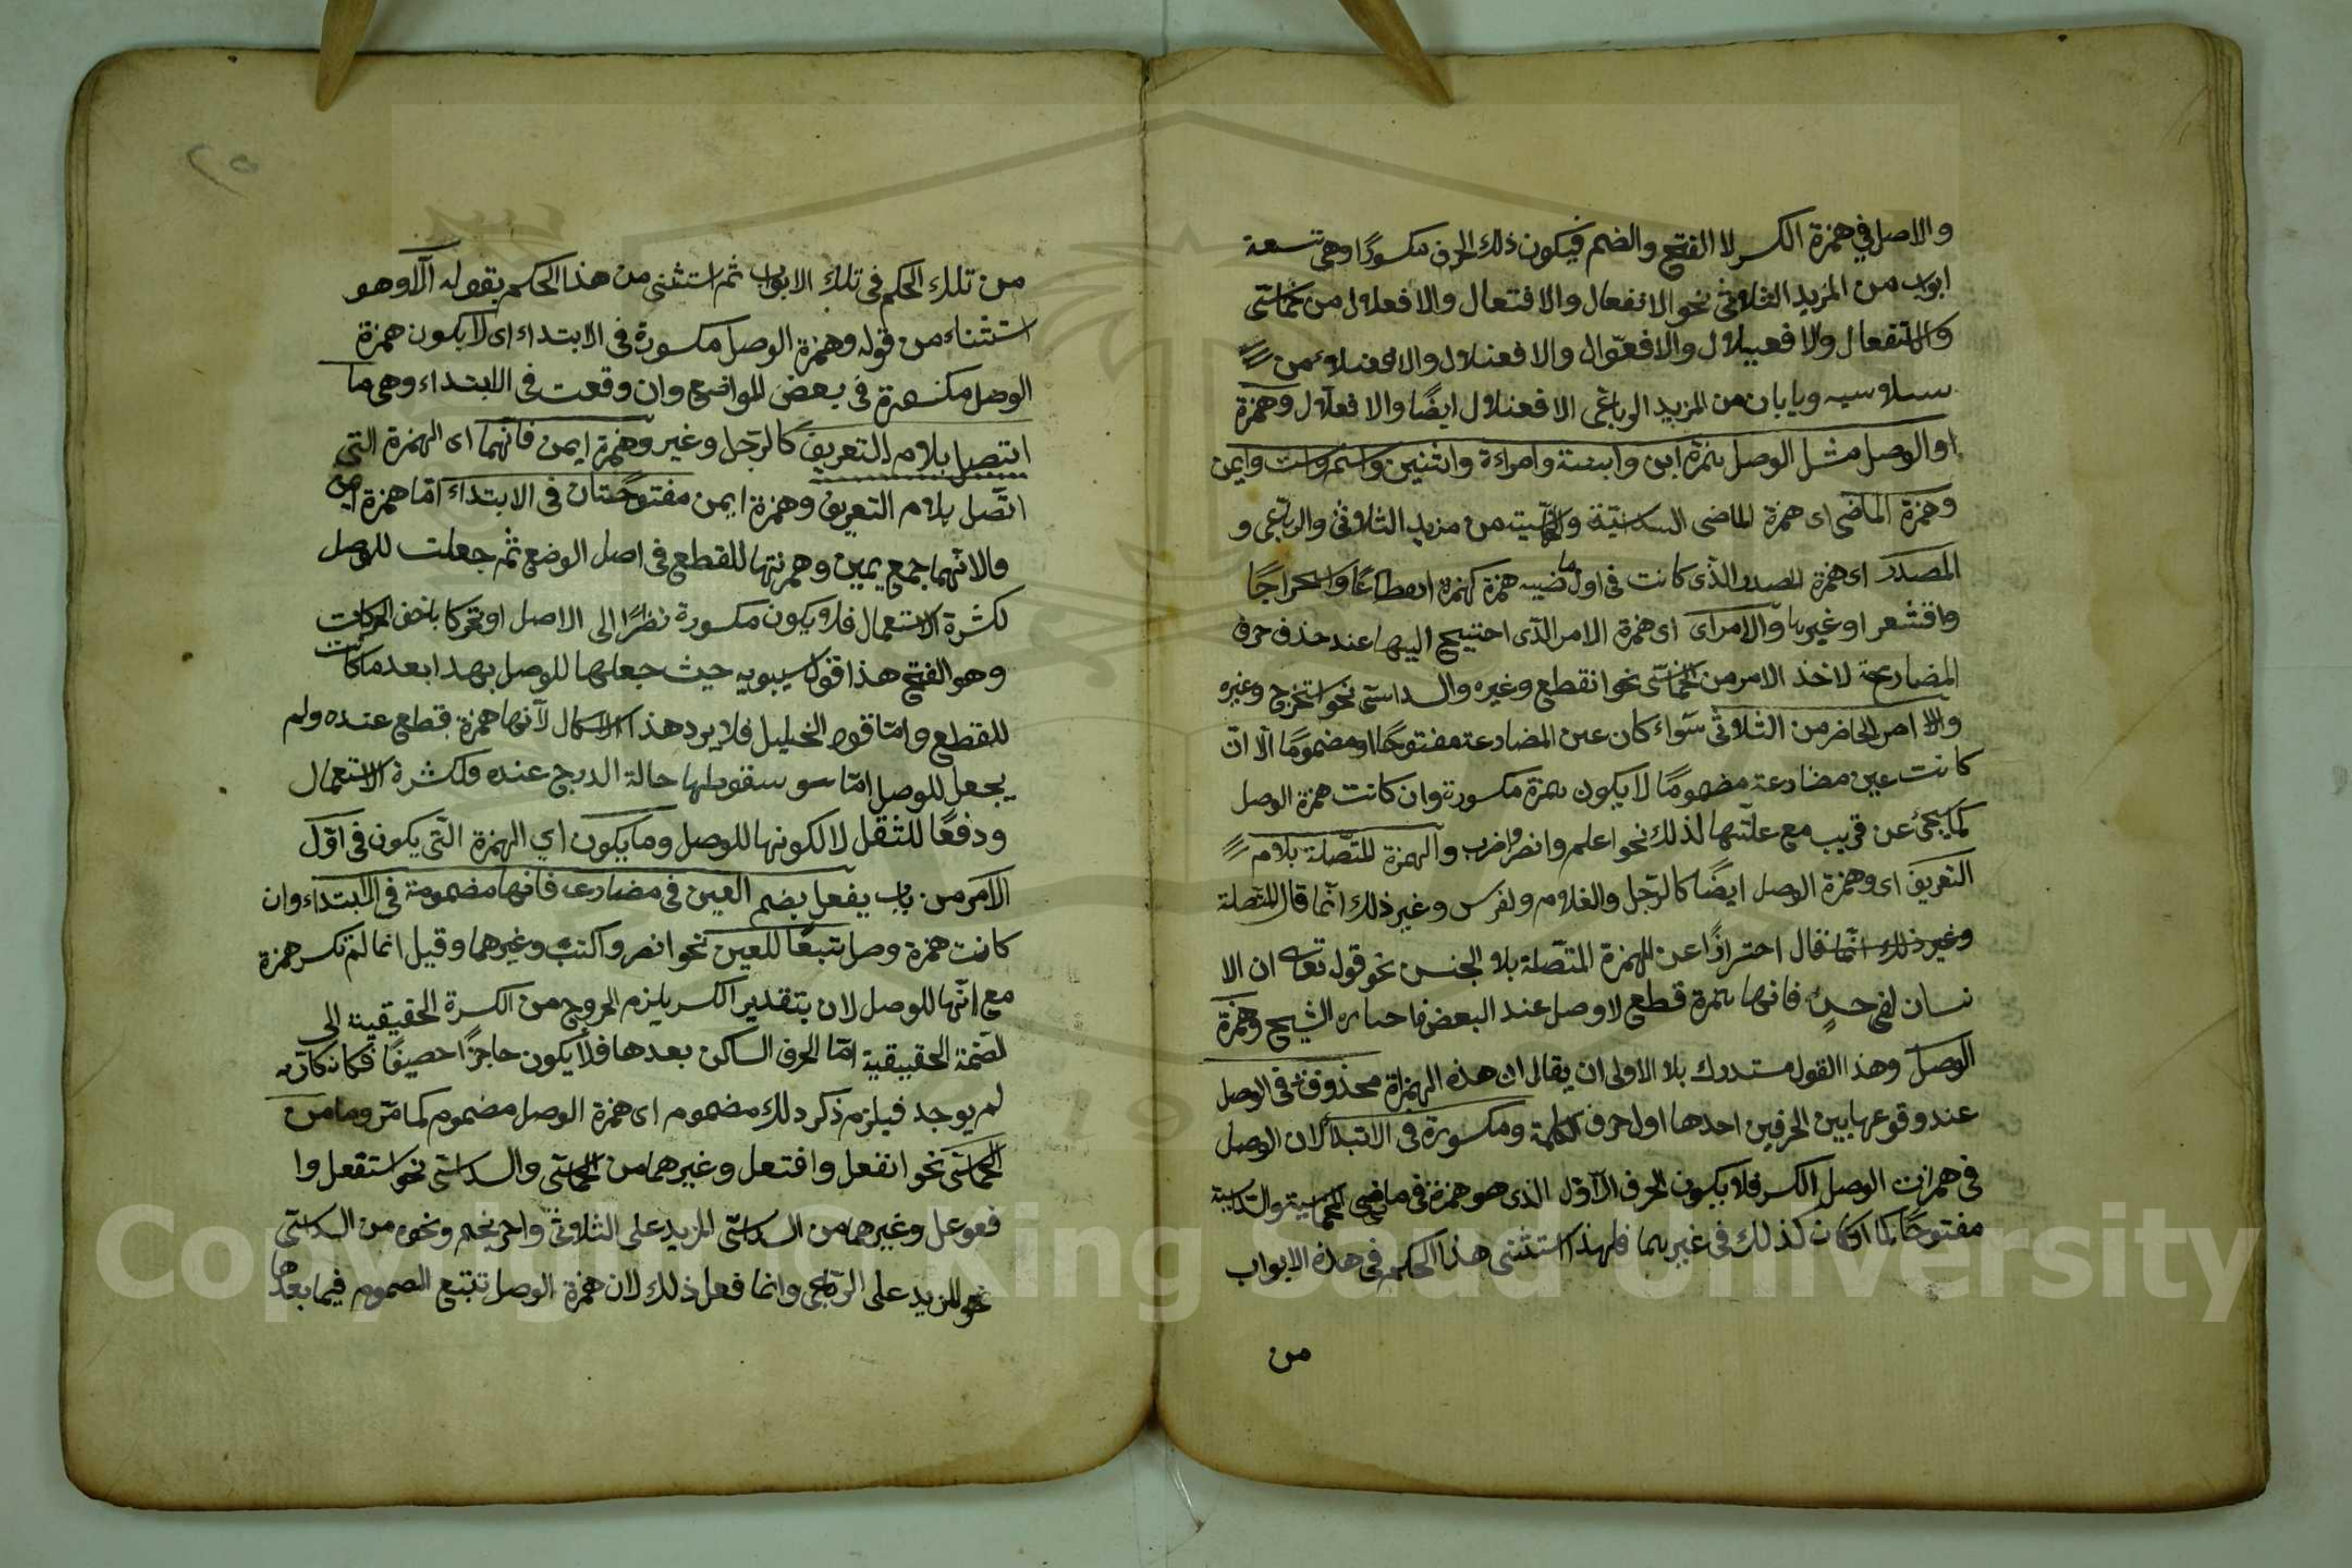 والاصل في همزة الكسر لا الفتح والضم فيكون ذلك الحرف مكسورًا وهي تسعة
ابواب من المزيد الثلاثي نحو الانفعال والافتعال والافعلال من خماسي
والاستفعال والافعيلال والافعوّال والافعنلال والافعنلاء من
سداسيه وبابان من المزيد الرباعي الافعنلال ايضًا والافعلّال وهمزة
او الوصل مثل الوصل بهمزة ابن وابنة وامراءة واثنين واسم واست وايمن
وهمزة الماضي اى همزة الماضى من مزيد الثلاثي والرباعي و
المصدر اى همزة المصدر الذى كانت في اول ماضيه همزة كهمزة انقطاعًا واستخراجًا
واقشعر او غيرها والامر اى اى همزة الامر الذى احتيج اليها عند حذف حرف
المضارعة لاخذ الامر من الخماسي نحو انقطع وغيره والسداسي نحو استخرج وغيره
والامر الحاضر من الثلاثي سواء كان عين المضارعة مفتوحًا او مضمومًا الّا انّ
كانت عين مضارعة مضمومًا لا يكون همزة مكسورة وان كانت همزة الوصل
كما يجيئ عن قريب مع علّتها لذلك نحو اعلم وانصر واضرب والهمزة المتّصلة بلام
التعريف اى وهمزة الوصل ايضًا كالرّجل والغلام ولفرس وغير ذلك انّما قال المتّصلة
وغير ذلك انّما قال احترازًا عن الهمزة المتّصلة بلا الجنس نحو قوله تعا ان الا
نسان لفي خسر فانها همزة قطع لا وصل عند البعض الشيخ وهمزة
الوصل وهذا القول مستدرك بلا الاولى ان يقال ان هذه الهمزاة محذوفة في الوصل
عند وقوعها بين الحرفين احدها اول حرف الكلمة ومكسورة في الابتداء لان الوصل
في همزات الوصل الكسر فلا يكون الحرف الاوّل الذى هو همزة في ماضي الخماسية والسداسية
مفتوحًا كما كان كذلك في غيرهما فلهذا استثنى هذا الحكم في هذه الابواب
من
٢٥
من تلك الحكم في تلك الابواب ثم استثنى من هذا الحكم بقوله الّا وهو
استثناء من قوله وهمزة الوصل مكسورة في الابتداء اى لا يكون همزة
الوصل مكسورة في بعض المواضع وان وقعت في الابتداء وهي ما
اتصل بلام التعريف كالرّجل وغير وهمزة ايمن فانّهما اى الهمزة التي
اتّصل بلام التعريف وهمزة ايمن مفتوحتان في الابتداء امّا همزة ايمن
والانّهما جمع يمين وهمزتها للقطع في اصل الوضع ثم جعلت للوصل
لكثرة الاستعمال فلا يكون مكسورة نظرًا الى الاصل او تحركا باخف الحركات
وهو الفتح هذا قول سيبويه حيث جعلها للوصل بهدا بعد ما كانت
للقطع وامّا قول الخليل فلا يرد هذا الاشكال لانّها همزة قطع عنده ولم
يجعل للوصل امّا سقوطها حالة الدرج عنده فلكثرة الاستعمال
ودفعًا للثقل لا لكونها للوصل وما يكون اي الهمزة التّي يكون في اوّل
الامر من باب يفعل بضم العين في مضارعه فانها مضمومة في الابتداء وان
كانت همزة وصل تبعًا للعين نحو انصر واكتب وغيرهما وقيل انما لم تكسر همزة
مع انّها للوصل لان بتقدير الكسر يلزم الخروج من الكسرة الحقيقية الى
لضمّة الحقيقية امّا الحرف الساكن بعدها فلا يكون حاجزًا حصيفًا فكان كانّه
لم يوجد فيلزم ذكر دلك مضموم اى همزة الوصل مضموم كما مرّ وما من
الخماسي نحو انفعل وافتعل وغيرهما من الخماسي والسداسي نحو استفعل وا
فعوعل وغيرهما من السداسي المزيد على الثلاثي واحرنجم ونحوه من السداسي
نحو المزيد على الرباعي وانما فعل ذلك لان همزة الوصل تتبع المضموم فيما بعدها
Copyright © King Saud University